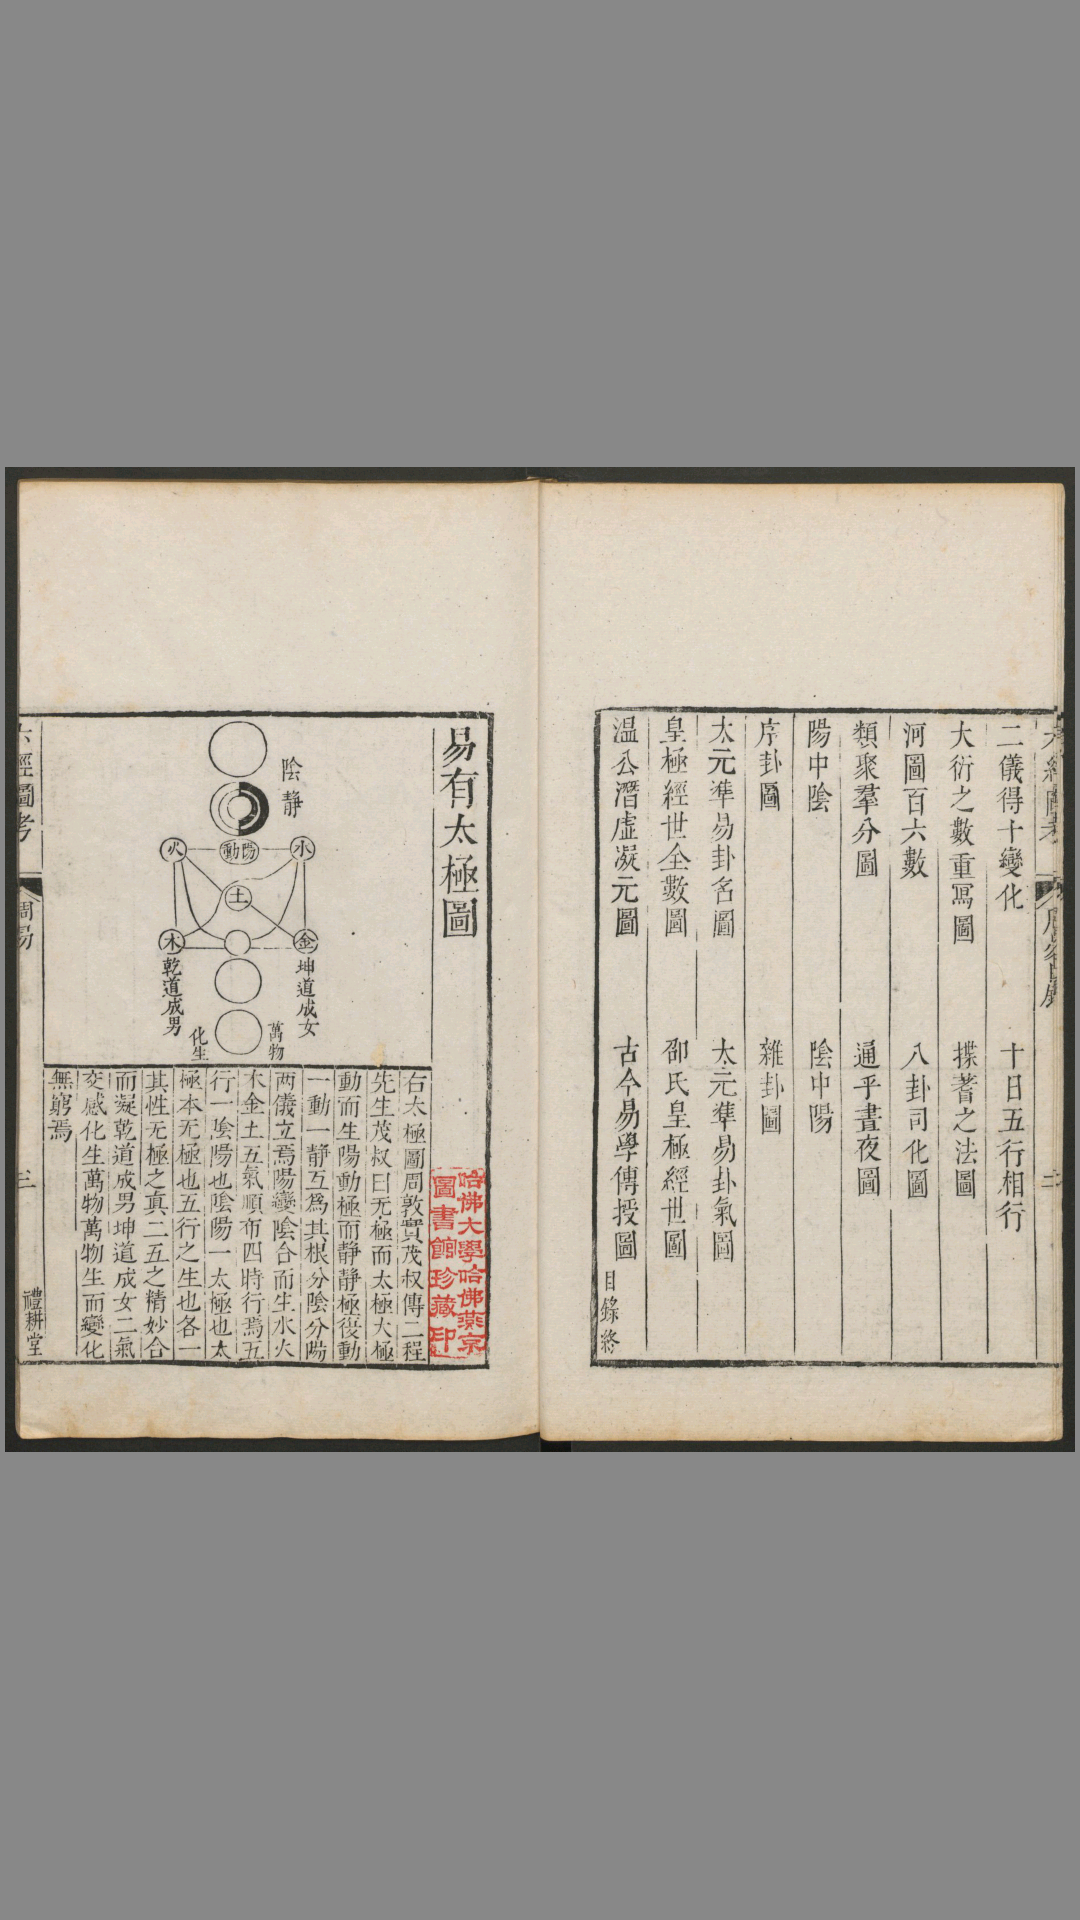 六經圖考
周易目錄
二
二儀得十變化
十日五行相行
大衍之數重寫圖
揲蓍之法圖
河圖百六數
八卦司化圖
類聚羣分圖
通乎晝夜圖
陽中陰
陰中陽
序卦圖
雜卦圖
太元準易卦名圖
太元準易卦氣圖
皇極經世全數圖
邵氏皇極經世圖
温公潛虛凝元圖
古今易學傳授圖
目錄終
易有太極圖
陰靜
陽動
水
火
土
金
木
坤道成女
乾道成男
萬物
化生
右太極圖周敦實茂叔傳二程
先生茂叔曰无極而太極太極
動而生陽動極而静静極復動
一動一静互為其根分陰分陽
两儀立焉陽變陰合而生水火
木金土五氣順布四時行焉五
行一陰陽也陰陽一太極也太
極本无極也五行之生也各一
其性无極之真二五之精妙合
而凝乾道成男坤道成女二氣
交感化生萬物萬物生而變化
無窮焉
哈佛大學哈佛燕京
圖書館珍藏印
六經圖考
周易
三
禮耕堂